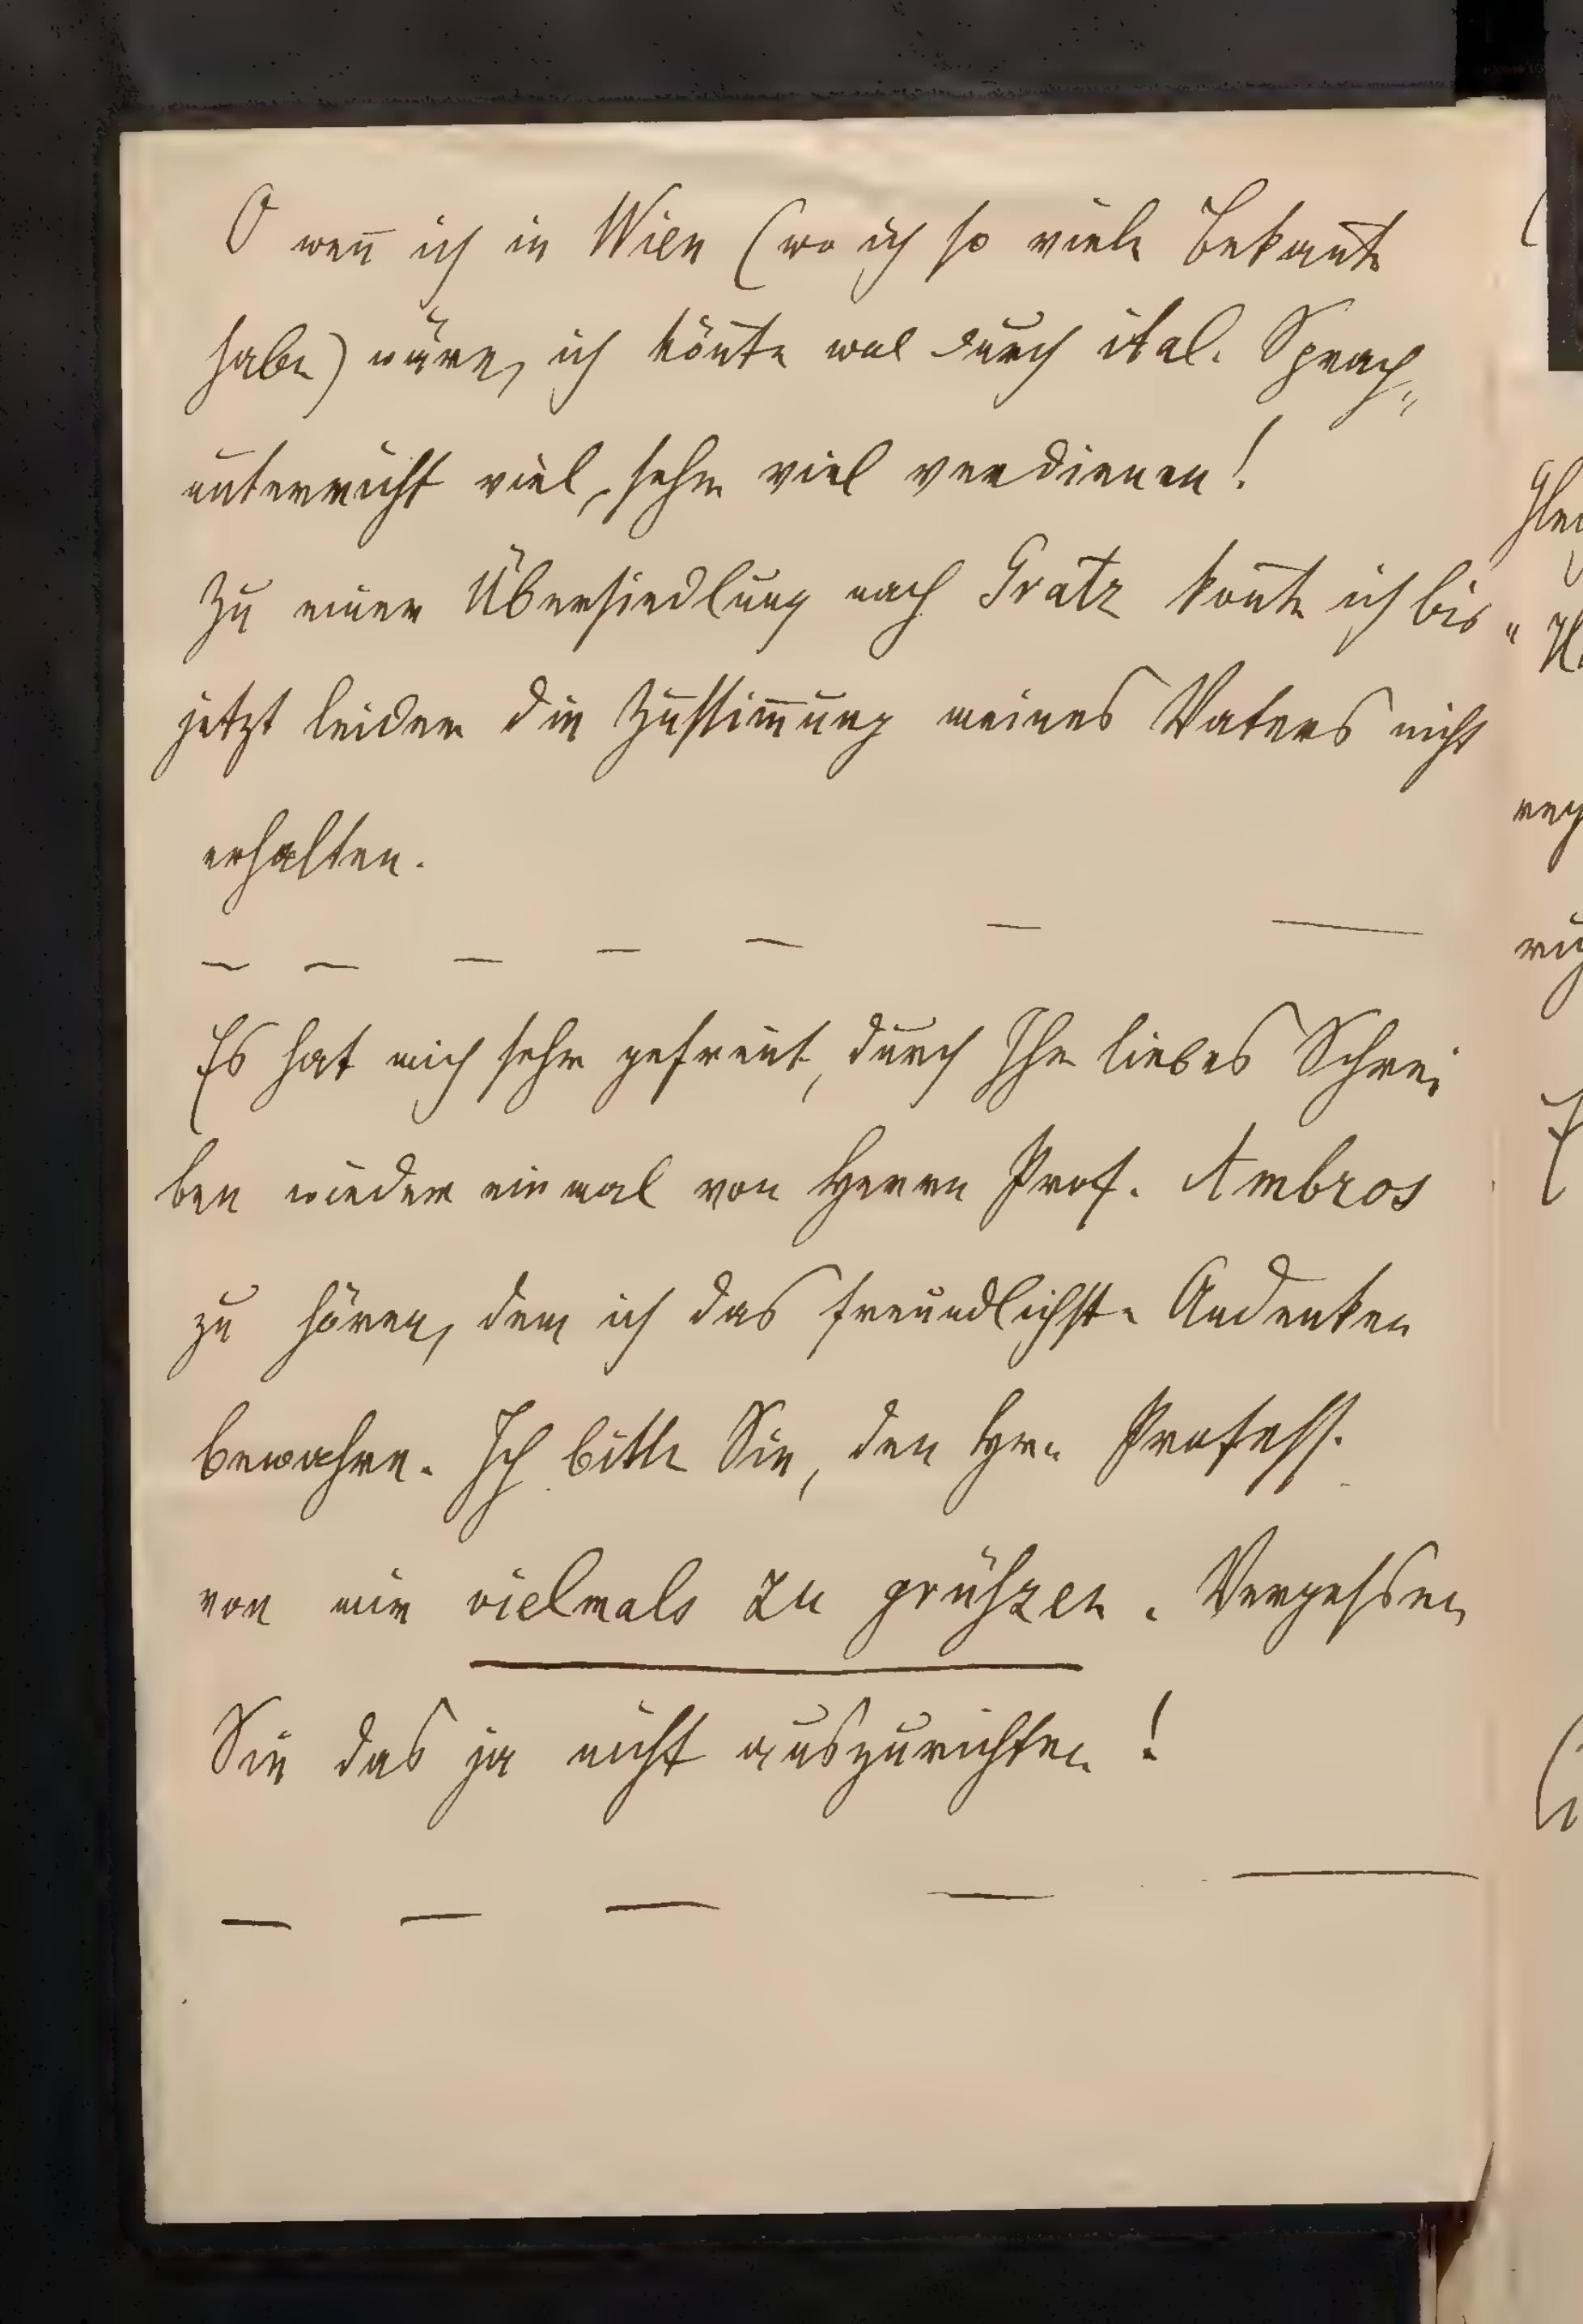 O wen̄ ich in Wien (wo ich so viele Bekan̄te
habe) wäre, ich kön̄te wol durch ital. Sprach„
unterricht viel, sehr viel verdienen!
Zu einer Übersiedlung nach Gratz kon̄te ich bis„
jetzt leider die Zustim̄ung meines Vaters nicht
erhalten.
— — — — — — —
Es hat mich sehr gefreut, durch Ihr liebes Schrei
ben wieder einmal von Herrn Prof. Ambros
zu hören, dem ich das freundlichste Andenken
bewahre. Ich bitte Sie, den Hrn Profess.
von mir vielmals zu grüßen. Vergessen
Sie das ja nicht auszurichten!
— — — — —